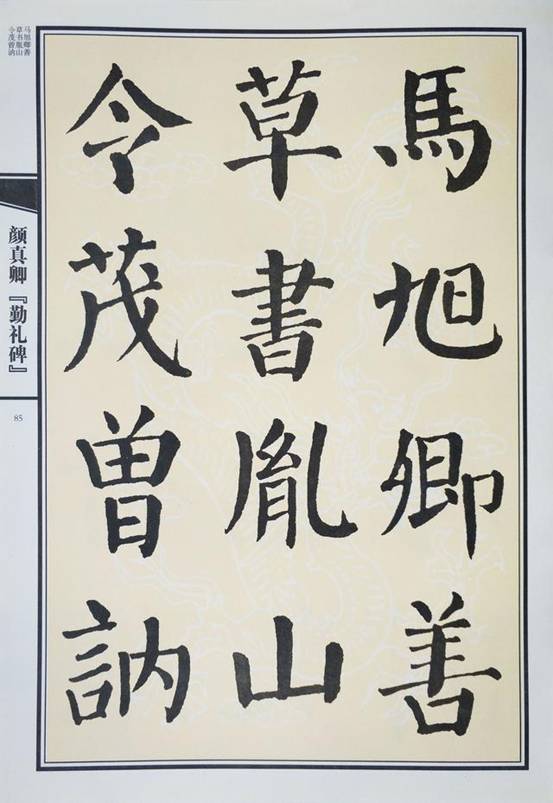 馬旭卿善
草書胤山
令茂曾訥
马旭卿善
草书胤山
令茂曾讷
颜真卿『勤礼碑』
85